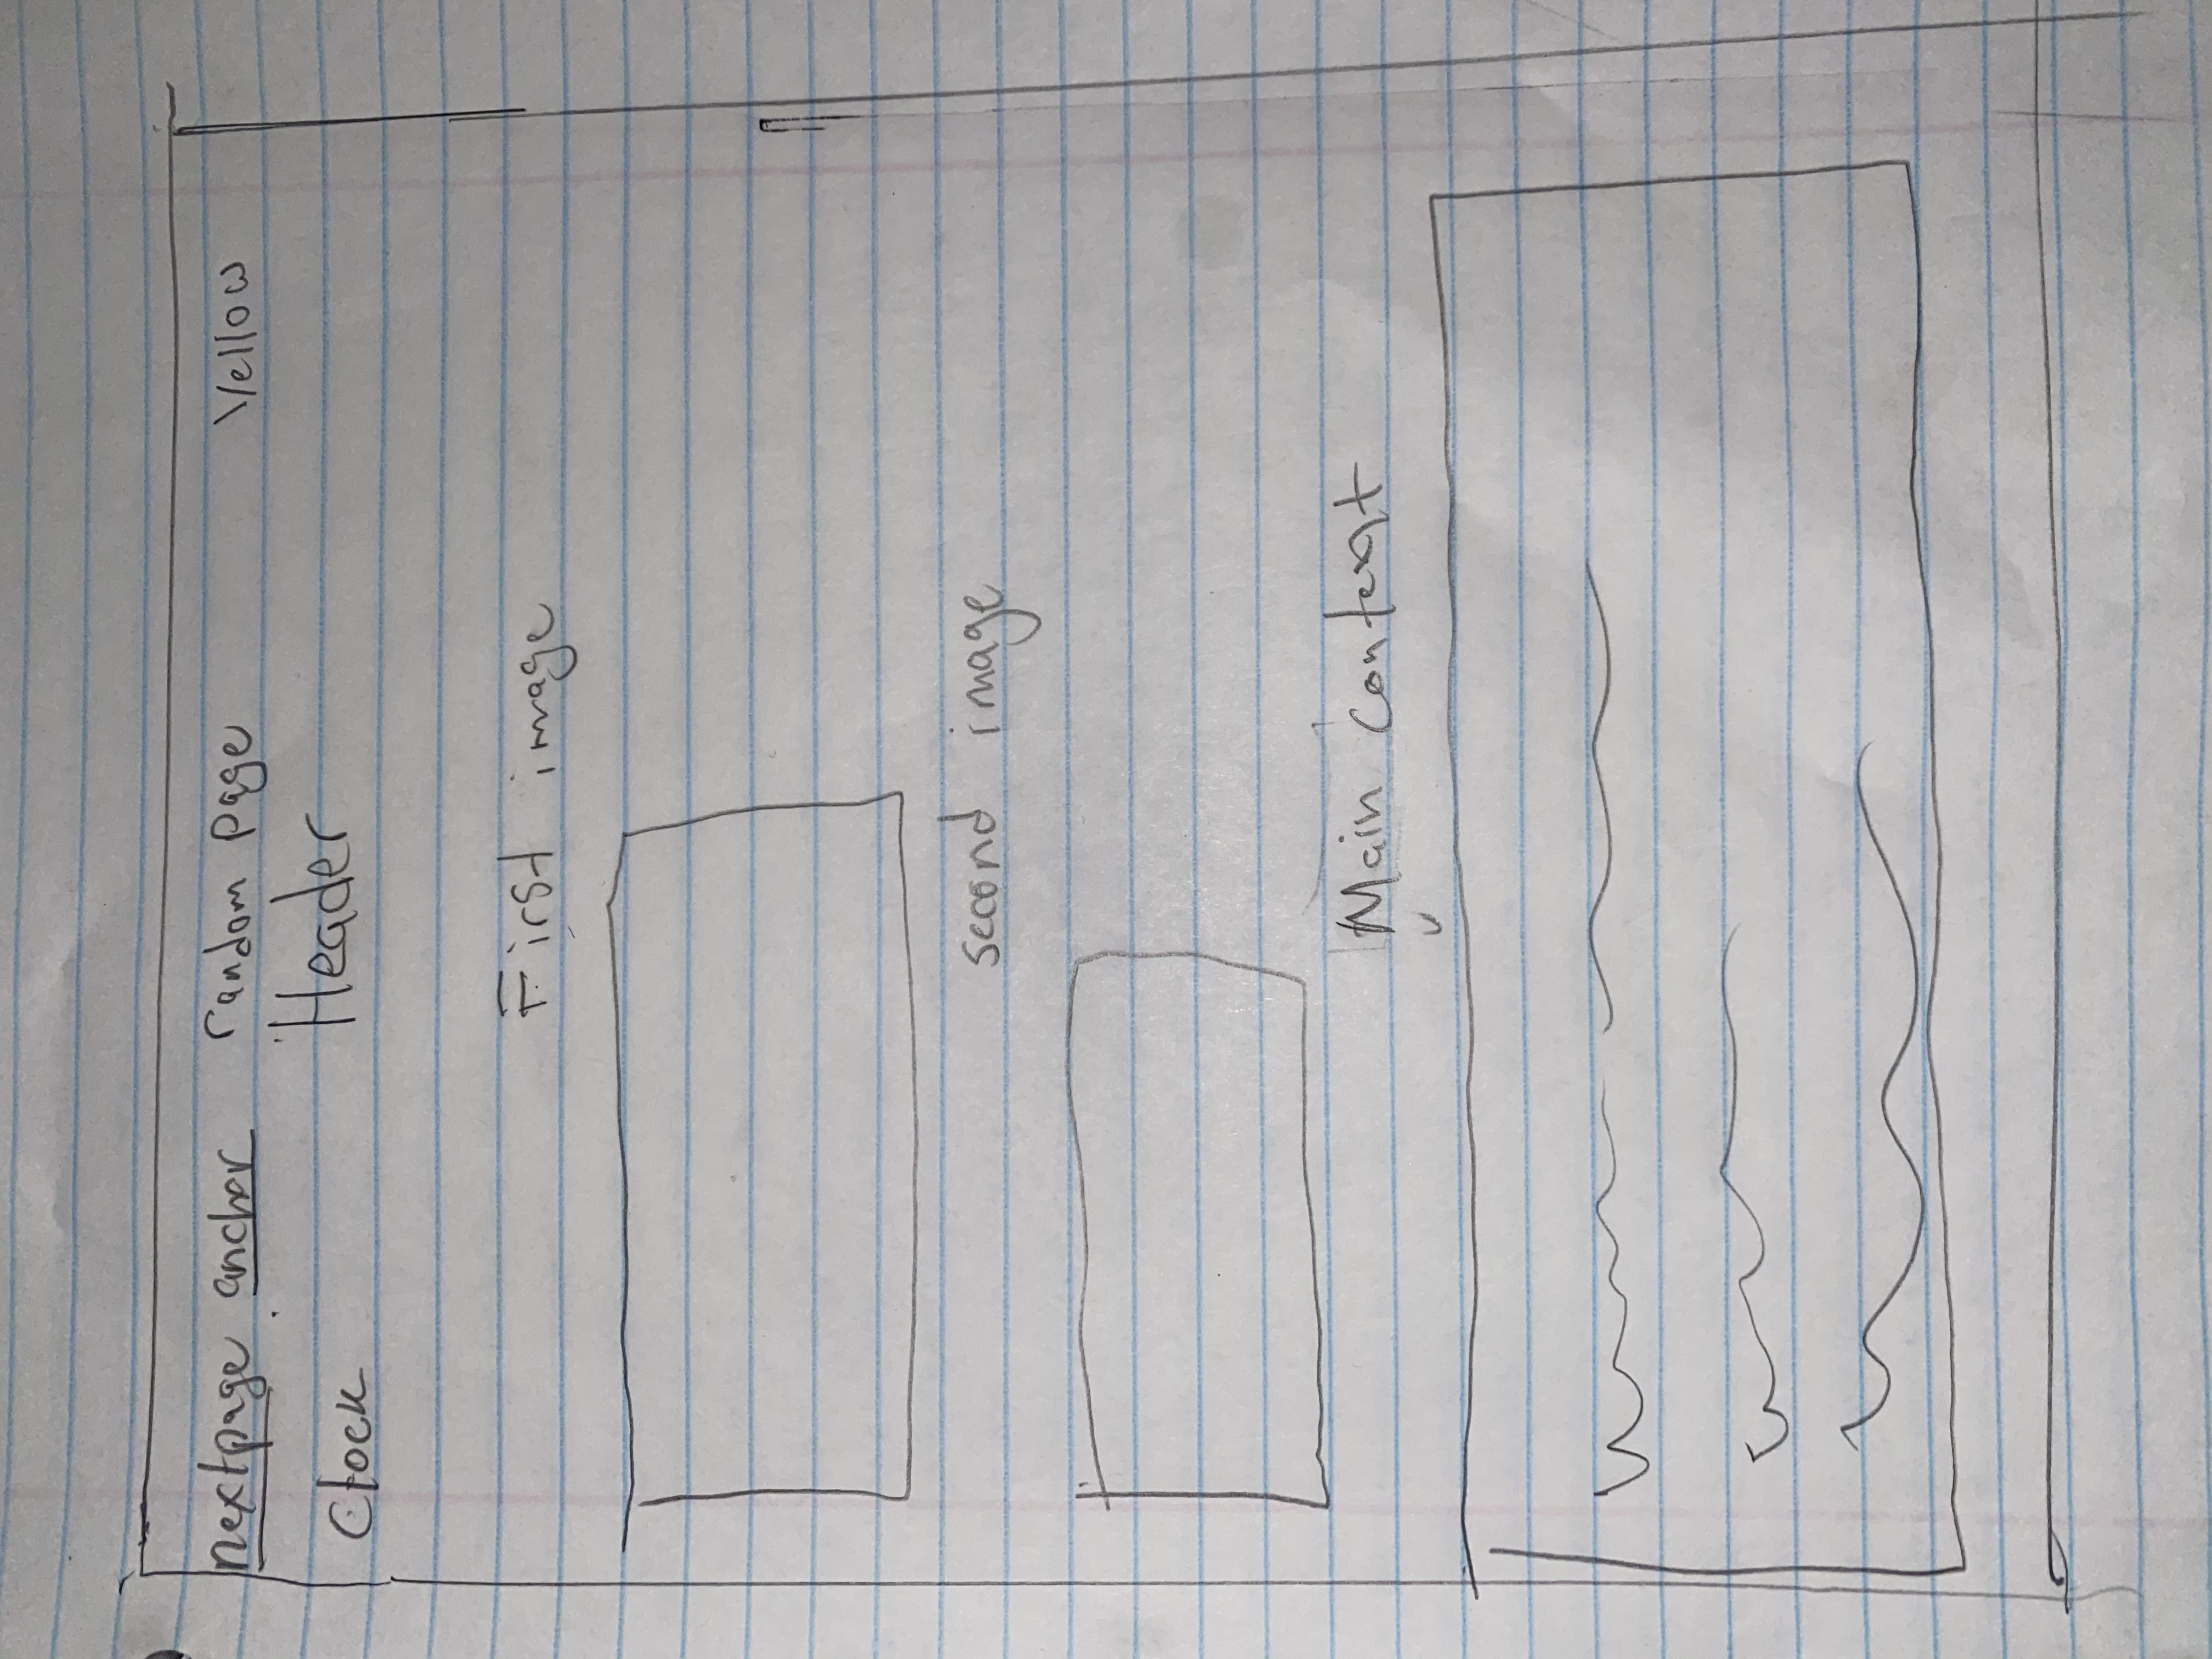 nextpage anchor random page Yellow
Clock Header
First image
second image
Main content